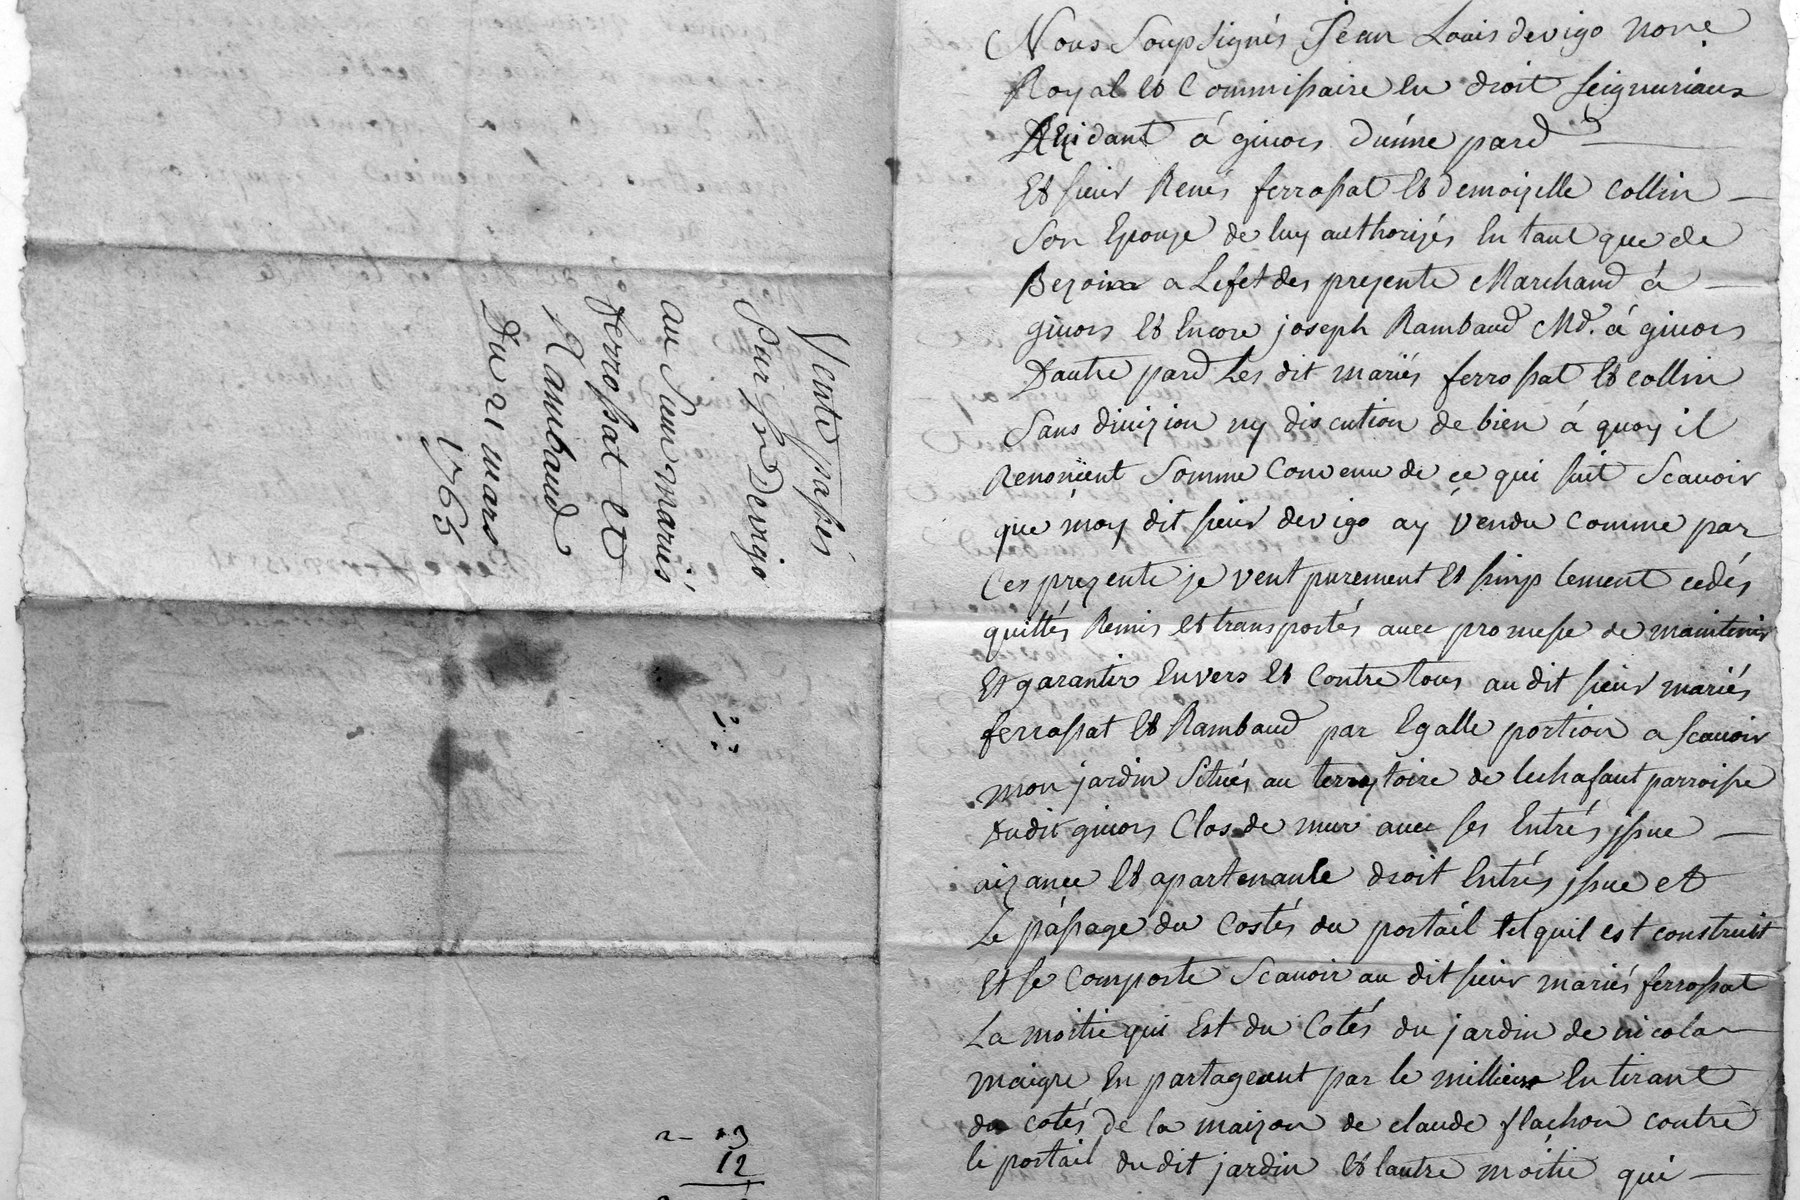 Vente passés
Par Sr Devigo
au Sieur mariés
ferrossat et
Rambaud
Du 21 mars
1765
2- 13
12
Nous Soupsignés Jean Louis devigo nore
Royal et Commissaire en droit seigneuriaux
Rezidant á givors d'únne pard
Et sieur Renés ferrossat et demoizelle collin
Son Epouze de luy authorizés en tant que de
Bezoin a Lefet des prezente Marchand á
givors et Encore joseph Rambaud Md. á givors
Dautre pard Les dit mariés ferrossat et collin
Sans divizion ny discution de bien á quoy il
Renonçent Somme Convenu de ce qui suit Scavoir
que moy dit sieur devigo ay vendu Comme par
Ces prezente je vent purement et simplement cedés
quittés Remis et transportés avec promesse de maintenir
Et garantir Envers et Contre tous au dit sieur mariés
ferrossat et Rambaud par Egalle portion a Scavoir
mon jardin Situés au terrytoire de lechafaut parroisse
dudit givors Clos de mur avec ses Entrés jssue
aizance et apartenante droit Entrés jssue et
Le passage du Costés du portail tel quil est construit
Et se Comporte Scavoir au dit sieur mariés ferrossat
La moitié qui Est du Cotés du jardin de nicola
maigre En partageant par le millieur En tirant
du cotés de la maizon de claude flachon contre
le portail du dit jardin et lautre moitié qui